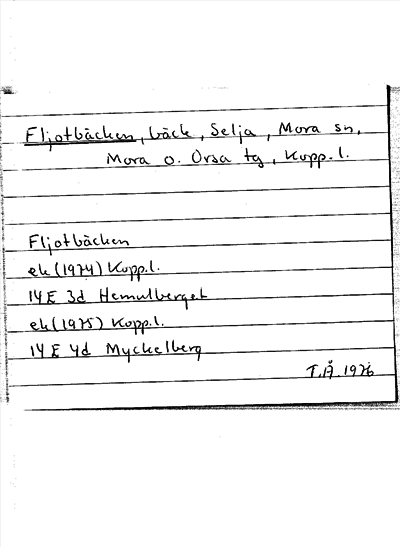 Fljotbäcken, bäck, Selja, Mora sn,
Mora o. Orsa tg, Kopp.l.
Fljotbäcken
ek (1974) Kopp.l.
14 E 3d Hemulberget
ek (1975) Kopp.l.
14 E 4d Myckelberg
T.Å. 1976